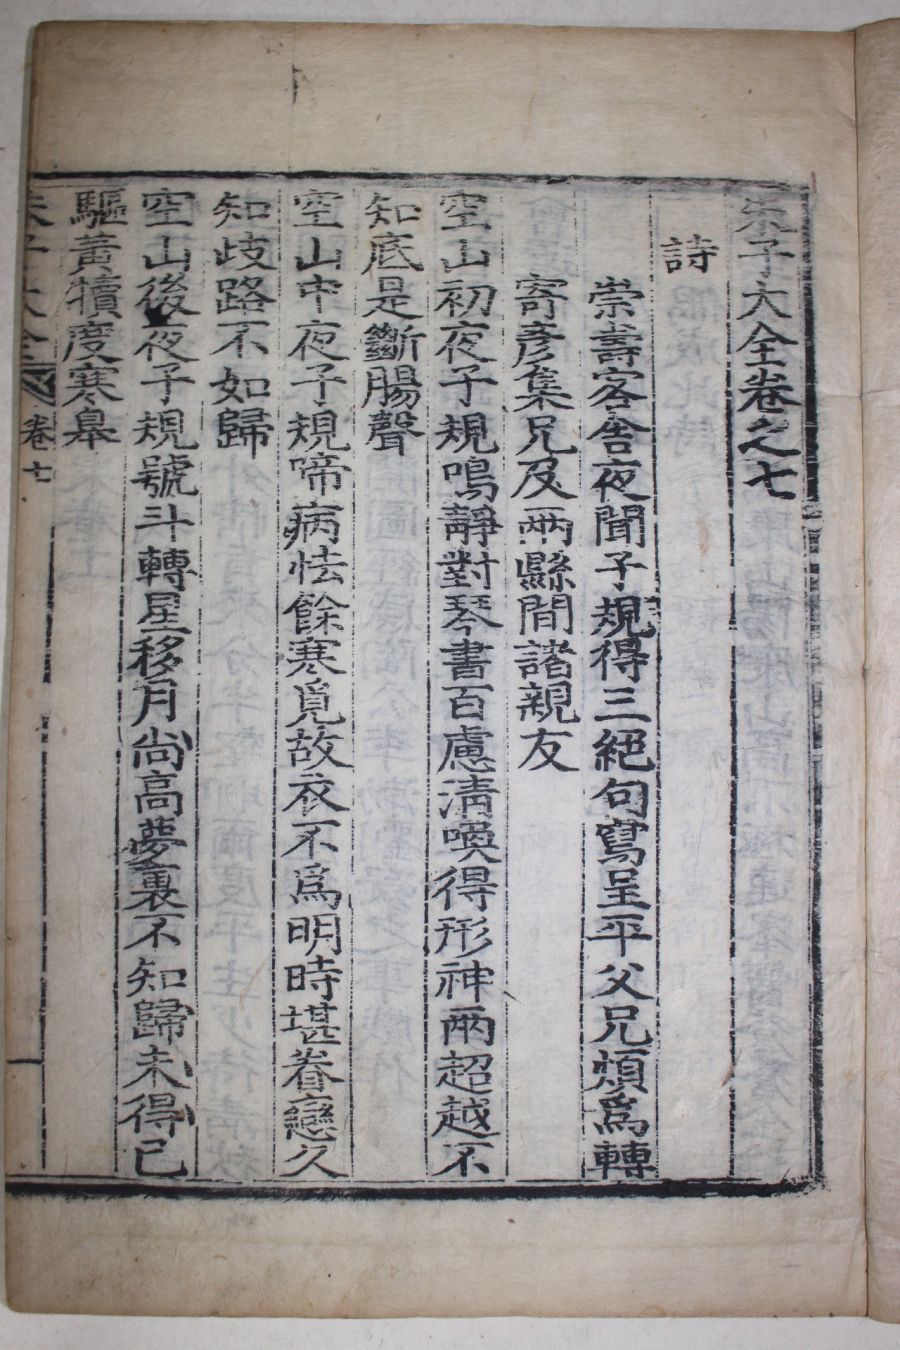 朱子大全卷之七
詩
崇壽客舍夜聞子規得三絕句寫呈平父兄煩爲轉
寄彥集兄及兩縣間諸親友
空山初夜子規鳴靜對琴書百慮淸喚得形神兩超越不
知底是斷腸聲
空山中夜子規啼病怯餘寒覓故衣不爲明時堪眷戀久
知歧路不如歸
空山後夜子規號斗轉星移月尙高夢裏不知歸未得已
驅黃犢度寒皋
朱子大全 卷七
一